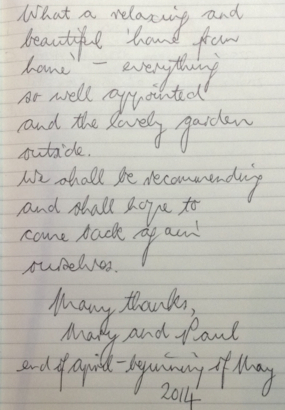 What a relaxing and
beautiful 'home from
home' - everything
so well appointed
and the lovely garden
outside.
We shall be recommending
and shall hope to
come back again
ourselves.
Many thanks,
Mary and Paul
end of april - beginning of May
2014